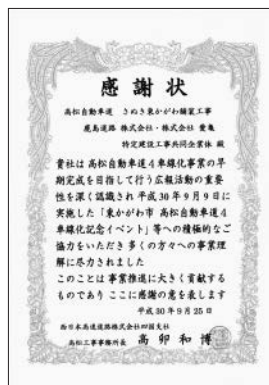 感謝状
高松自動車道 さぬき東かがわ舗装工事
鹿島道路 株式会社・株式会社 愛亀
特定建設工事共同企業体 殿
貴社は 高松自動車道4車線化事業の早
期完成を目指して行う広報活動の重要
性を深く認識され 平成30年9月9日に
実施した「東かがわ市 高松自動車道4
車線化記念イベント」等への積極的なご
協力をいただき 多くの方々への事業理
解に尽力されました
このことは 事業推進に大きく貢献する
ものであり ここに感謝の意を表します
平成30年9月25日
西日本高速道路株式会社四国支社
高松工事事務所長 高卯和博